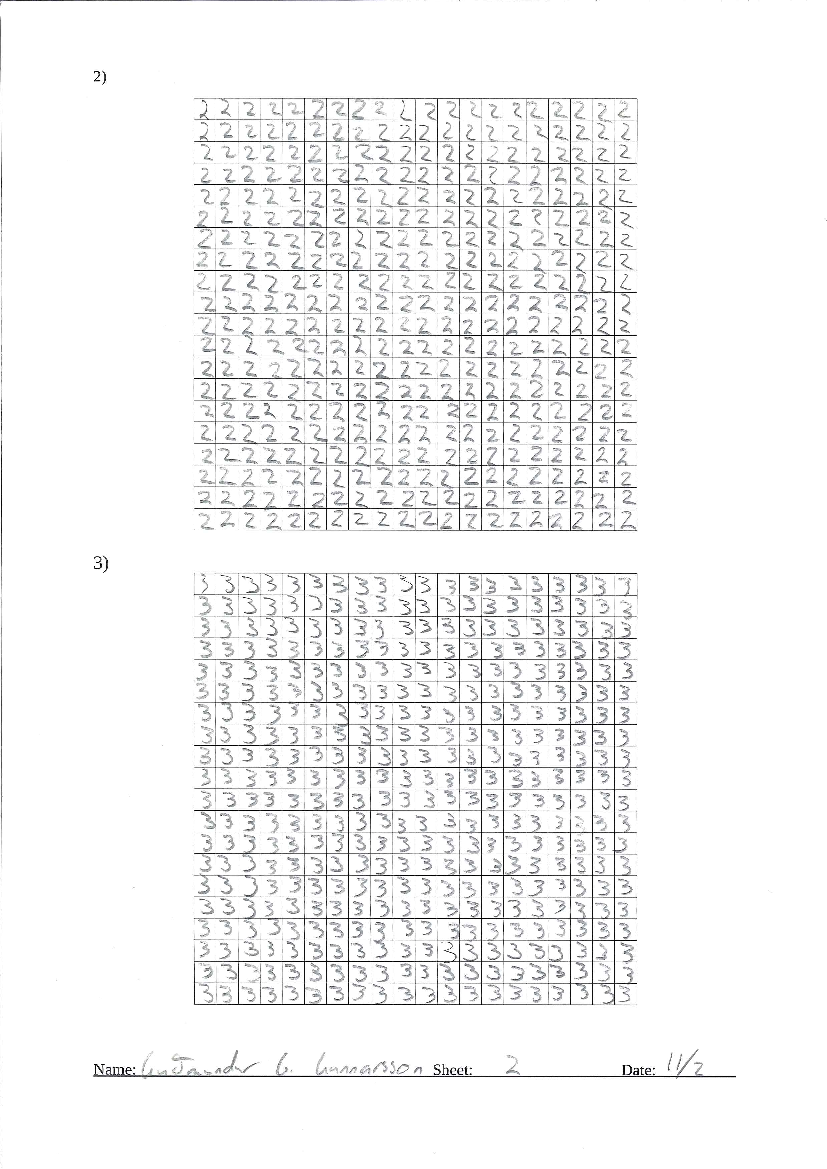 2)
2 2 2 2 2 2 2 2 2 2 2 2 2 2 2 2 2 2 2 2
2 2 2 2 2 2 2 2 2 2 2 2 2 2 2 2 2 2 2 2
2 2 2 2 2 2 2 2 2 2 2 2 2 2 2 2 2 2 2 2
2 2 2 2 2 2 2 2 2 2 2 2 2 2 2 2 2 2 2 2
2 2 2 2 2 2 2 2 2 2 2 2 2 2 2 2 2 2 2 2
2 2 2 2 2 2 2 2 2 2 2 2 2 2 2 2 2 2 2 2
2 2 2 2 2 2 2 2 2 2 2 2 2 2 2 2 2 2 2 2
2 2 2 2 2 2 2 2 2 2 2 2 2 2 2 2 2 2 2 2
2 2 2 2 2 2 2 2 2 2 2 2 2 2 2 2 2 2 2 2
2 2 2 2 2 2 2 2 2 2 2 2 2 2 2 2 2 2 2 2
2 2 2 2 2 2 2 2 2 2 2 2 2 2 2 2 2 2 2 2
2 2 2 2 2 2 2 2 2 2 2 2 2 2 2 2 2 2 2 2
2 2 2 2 2 2 2 2 2 2 2 2 2 2 2 2 2 2 2 2
2 2 2 2 2 2 2 2 2 2 2 2 2 2 2 2 2 2 2 2
2 2 2 2 2 2 2 2 2 2 2 2 2 2 2 2 2 2 2 2
2 2 2 2 2 2 2 2 2 2 2 2 2 2 2 2 2 2 2 2
2 2 2 2 2 2 2 2 2 2 2 2 2 2 2 2 2 2 2 2
2 2 2 2 2 2 2 2 2 2 2 2 2 2 2 2 2 2 2 2
2 2 2 2 2 2 2 2 2 2 2 2 2 2 2 2 2 2 2 2
2 2 2 2 2 2 2 2 2 2 2 2 2 2 2 2 2 2 2 2
3)
3 3 3 3 3 3 3 3 3 3 3 3 3 3 3 3 3 3 3 3
3 3 3 3 3 3 3 3 3 3 3 3 3 3 3 3 3 3 3 3
3 3 3 3 3 3 3 3 3 3 3 3 3 3 3 3 3 3 3 3
3 3 3 3 3 3 3 3 3 3 3 3 3 3 3 3 3 3 3 3
3 3 3 3 3 3 3 3 3 3 3 3 3 3 3 3 3 3 3 3
3 3 3 3 3 3 3 3 3 3 3 3 3 3 3 3 3 3 3 3
3 3 3 3 3 3 3 3 3 3 3 3 3 3 3 3 3 3 3 3
3 3 3 3 3 3 3 3 3 3 3 3 3 3 3 3 3 3 3 3
3 3 3 3 3 3 3 3 3 3 3 3 3 3 3 3 3 3 3 3
3 3 3 3 3 3 3 3 3 3 3 3 3 3 3 3 3 3 3 3
3 3 3 3 3 3 3 3 3 3 3 3 3 3 3 3 3 3 3 3
3 3 3 3 3 3 3 3 3 3 3 3 3 3 3 3 3 3 3 3
3 3 3 3 3 3 3 3 3 3 3 3 3 3 3 3 3 3 3 3
3 3 3 3 3 3 3 3 3 3 3 3 3 3 3 3 3 3 3 3
3 3 3 3 3 3 3 3 3 3 3 3 3 3 3 3 3 3 3 3
3 3 3 3 3 3 3 3 3 3 3 3 3 3 3 3 3 3 3 3
3 3 3 3 3 3 3 3 3 3 3 3 3 3 3 3 3 3 3 3
3 3 3 3 3 3 3 3 3 3 3 3 3 3 3 3 3 3 3 3
3 3 3 3 3 3 3 3 3 3 3 3 3 3 3 3 3 3 3 3
3 3 3 3 3 3 3 3 3 3 3 3 3 3 3 3 3 3 3 3
Name: G. Gunnarsson Sheet: 2 Date: 11/2